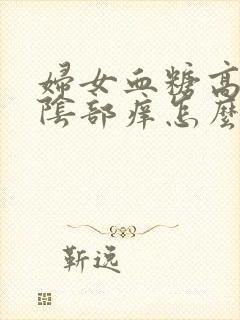 婦女血糖高
陰部痒怎麼
靳逸